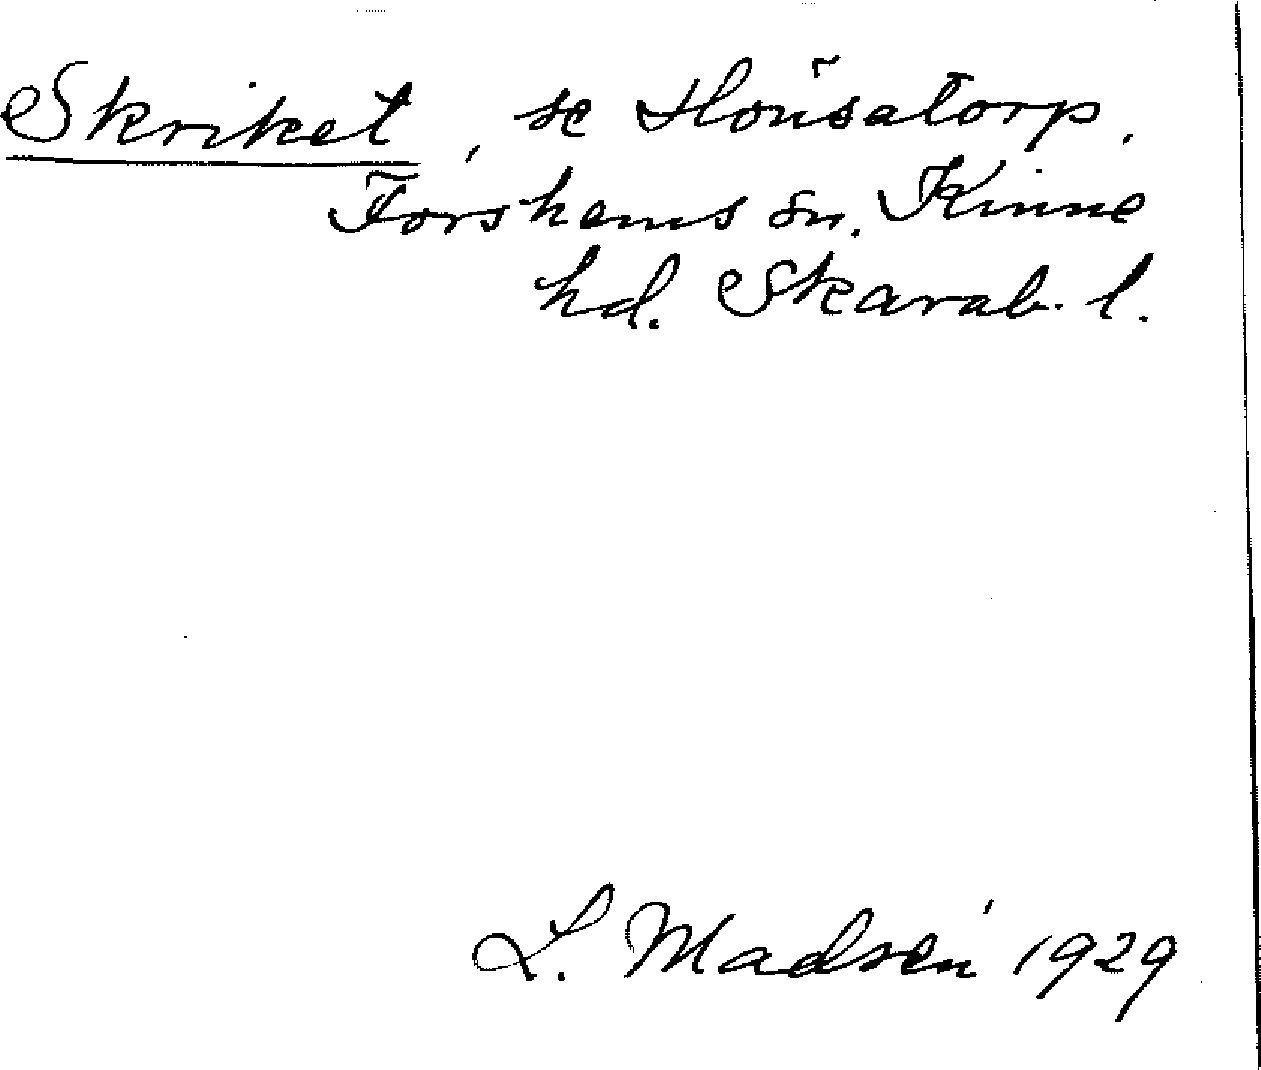 Skriket, se Honsatorp,
Forshems sn. Kinne
hd. Skarab. l.
L. Madsén 1929